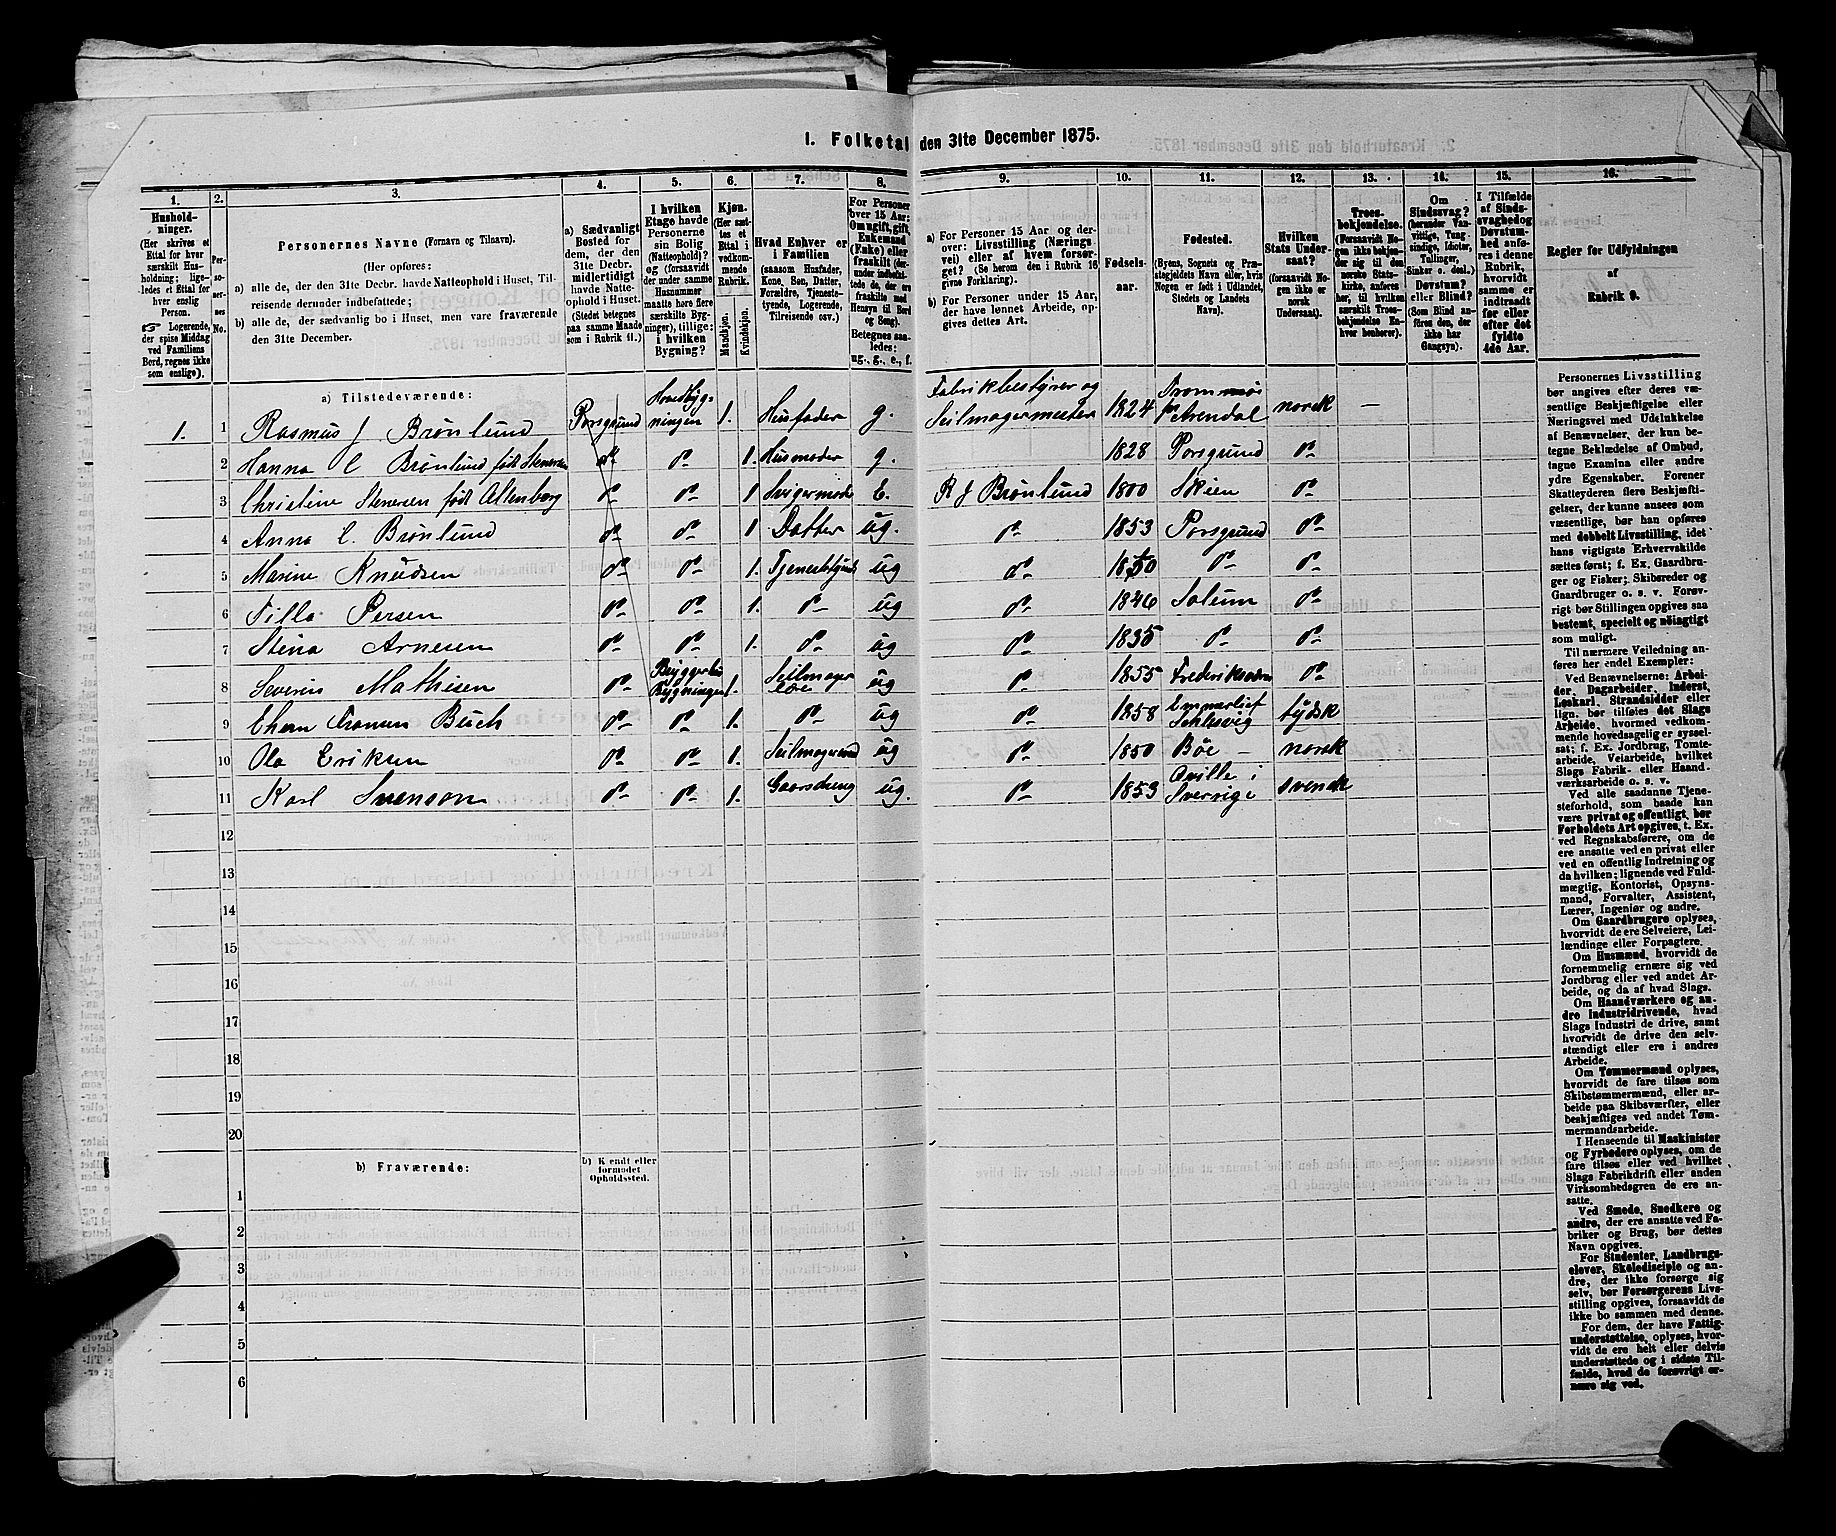 1. Folketal den 31te December 1875.
1. 2. 3. 4. 5. 6. 7. 8. 9. 10. 11. 12. 13. 14. 15. 16.
Hushold-
ninger.
(Her skrives et
Ettal for hver
særskilt Hus-
holdning; lige-
ledes et Ettal for
hver enslig
Person.
☞ Logerende,
der spise Middag
ved Familiens
Bord, regnes ikke
som enslige).
Per-
soner-
nes
No.
Personernes Navne (Fornavn og Tilnavn).
(Her opføres:
a) alle de, der den 31te Decbr. havde Natteophold i Huset, Til-
reisende derunder indbefattede;
b) alle de, der sædvanlig bo i Huset, men vare fraværende
den 31te December.
a) Sædvanligt
Bosted for
dem, der den
31te Decbr.
midlertidigt
havde Natte-
ophold i Huset.
(Stedet betegnes
paa samme Maade
som i Rubrik 11.)
I hvilken
Etage havde
Personerne
sin Bolig
(Natteophold)?
og (forsaavidt
der under samme
Husnummer
maatte høre flere
særskilte Byg-
ninger), tillige:
i hvilken
Bygning?
Kjøn.
(Her sæt-
tes et
Ettal i
vedkom-
mende
Rubrik.
Mandkjøn.
Kvindekjøn.
Hvad Enhver er
i Familien
(saasom Husfader,
Kone, Søn, Datter,
Forældre, Tjeneste-
tyende, Logerende,
Tilreisende osv.)
For Personer
over 15 Aar:
Om ugift, gift,
Enkemand
(Enke) eller
fraskilt (der-
under indbefat-
tede de, der ere
fraskilte med
Hensyn til Bord
og Seng).
Betegnes saa-
ledes:
ug., g., e., f.
a) For Personer 15 Aar og der-
over: Livsstilling (Nærings-
vei) eller af hvem forsør-
get? (Se herom den i Rubrik 16
givne Forklaring).
b) For Personer under 15 Aar,
der have lønnet Arbeide, op-
gives dettes Art.
Fødsels-
aar.
Fødested.
(Byens, Sognets og Præ-
stegjeldets Navn eller, hvis
Nogen er født i Udlandet,
Stedets og Landets
Navn).
Hvilken
Stats Under-
saat?
(forsaavidt No-
gen ikke er
norsk
Undersaat).
Troes-
bekjendelse.
(Forsaavidt No-
gen ikke bekjen-
der sig til den
norske Stats-
kirke, anføres
her, til hvilken
særskilt Troes-
bekjendelse En-
hver henhører).
Om
Sindssvag?
(herunder Van-
vittige, Tung-
sindige, Idioter,
Tullinger,
Sinker o. desl.)
Døvstum?
eller Blind?
(Som Blind an-
føres den, der
ikke har
Gangsyn).
I Tilfælde
af Sinds-
svaghed og
Døvstum-
hed anfø-
res i denne
Rubrik,
hvorvidt
samme er
indtraadt
før eller
efter det
fyldte
4de Aar.
Regler for Udfyldningen
af
Rubrik 9.
a) Tilstedeværende:
1. 1 Rasmus J Brønlund Porsgrund Hovedbyg-
ningen 1. Husfader g. Fabrikbestyrer og
Seilmagermester 1824 Trommøi
pr Arendal norsk —
2 Hanna C Brønlund født Stenersen do do 1. Husmoder g. 1828 Porsgrund do
3 Christine Stenersen født Altenborg do do 1 Svigermode E. R J Brønlund 1800 Skien do
4 Anna C. Brønlund do do 1 Datter ug. do 1853 Porsgrund do
5 Marine Knudsen do do 1. Tjenestetyende ug do 1850 do do
6 Tilla Persen do do 1. do ug do 1846 Solum do
7 Stina Arnesen do do 1. do ug do 1835 do do
8 Severin Mathisen do do Bryggerhus
Bygningen 1. Seilmager ug do 1855 Frederiksværn do
9 Chan Fransen Buch do do 1. do ug do 1858 Emmerlef
Schlesvig tydsk
10 Ola Eriksen do do 1. Seilmagersvend ug do 1850 Bøe — norsk
11 Karl Svenson do do 1. Gaarsdreng ug. do 1853 Qville i
Sverrige svensk
12
13
14
15
16
17
18
19
20
b) Fraværende:
b) Kjendt eller
formodet
Opholdssted.
1
2
3
4
5
6
Personernes Livsstilling
bør angives efter deres væ-
sentlige Beskjæftigelse eller
Næringsvei med Udelukkelse
af Benævnelser, der kun be-
tegne Beklædelse af Ombud,
tagne Examina eller andre
ydre Egenskaber. Forener
Skatteyderen flere Beskjæfti-
gelser, der kunne ansees som
væsentlige, bør han opføres
med dobbelt Livsstilling, idet
hans vigtigste Erhvervskilde
sættes først; f. Ex. Gaardbru-
ger og Fisker; Skibsreder og
Gaardbruger o. s. v. Forøv-
rigt bør Stillingen opgives saa
bestemt, specielt og nøiagtigt
som muligt.
Til nærmere Veiledning an-
føres her endel Exempler:
Ved Benævnelserne: Arbei-
der, Dagarbeider, Inderst,
Løskarl, Strandsidder eller
lign. bør tilføies det Slags
Arbeide, hvormed vedkom-
mende hovedsagelig er syssel-
sat; f. Ex. Jordbrug, Tomte-
arbeide, Veiarbeide, hvilket
Slags Fabrik- eller Haand-
værksarbeide o. s. v.
Ved alle saadanne Tjene-
steforhold, som baade kan
være privat og offentligt, bør
Forholdets Art opgives, t. Ex.
ved Regnskabsførere, om de
ere ansatte ved en privat eller
ved en offentlig Indretning og
da hvilken; lignende ved Fuld-
mægtig, Kontorist, Opsyns-
mand, Forvalter, Assistent,
Lærer, Ingeniør og andre.
Om Gaardbrugere oplyses,
hvorvidt de ere Selveiere, Lei-
lændinge eller Forpagtere.
Om Husmænd, hvorvidt de
fornemmelig ernære sig ved
Jordbrug eller ved andet Ar-
beide, og da af hvad Slags.
Om Haandværkere og an-
dre Industridrivende, hvad
Slags Industri de drive, samt
hvorvidt de drive den selv-
stændigt eller ere i andres
Arbeide.
Om Tømmermænd oplyses,
hvorvidt de fare tilsøs som
Skibstømmermænd, eller ar-
beide paa Skibsværfter, eller
beskjæftiges ved andet Tøm-
mermandsarbeide.
I Henseende til Maskinister
og Fyrbødere oplyses, om de
fare tilsøs eller ved hvilket
Slags Fabrikdrift eller anden
Virksomhedsgren de ere an-
satte.
Ved Smede, Snedkere og
andre, der ere ansatte ved Fa-
briker og Brug, bør dettes
Navn opgives.
For Studenter, Landbrugs-
elever, Skoledisciple og an-
dre, der ikke forsørge sig
selv, bør Forsørgerens Livs-
stilling opgives, forsaavidt de
ikke bo sammen med denne.
For dem, der have Fattig-
understøttelse, oplyses, hvor-
vidt de ere helt eller delvis
understøttede og i sidste Til-
fælde, hvad de forøvrigt er-
nære sig ved.